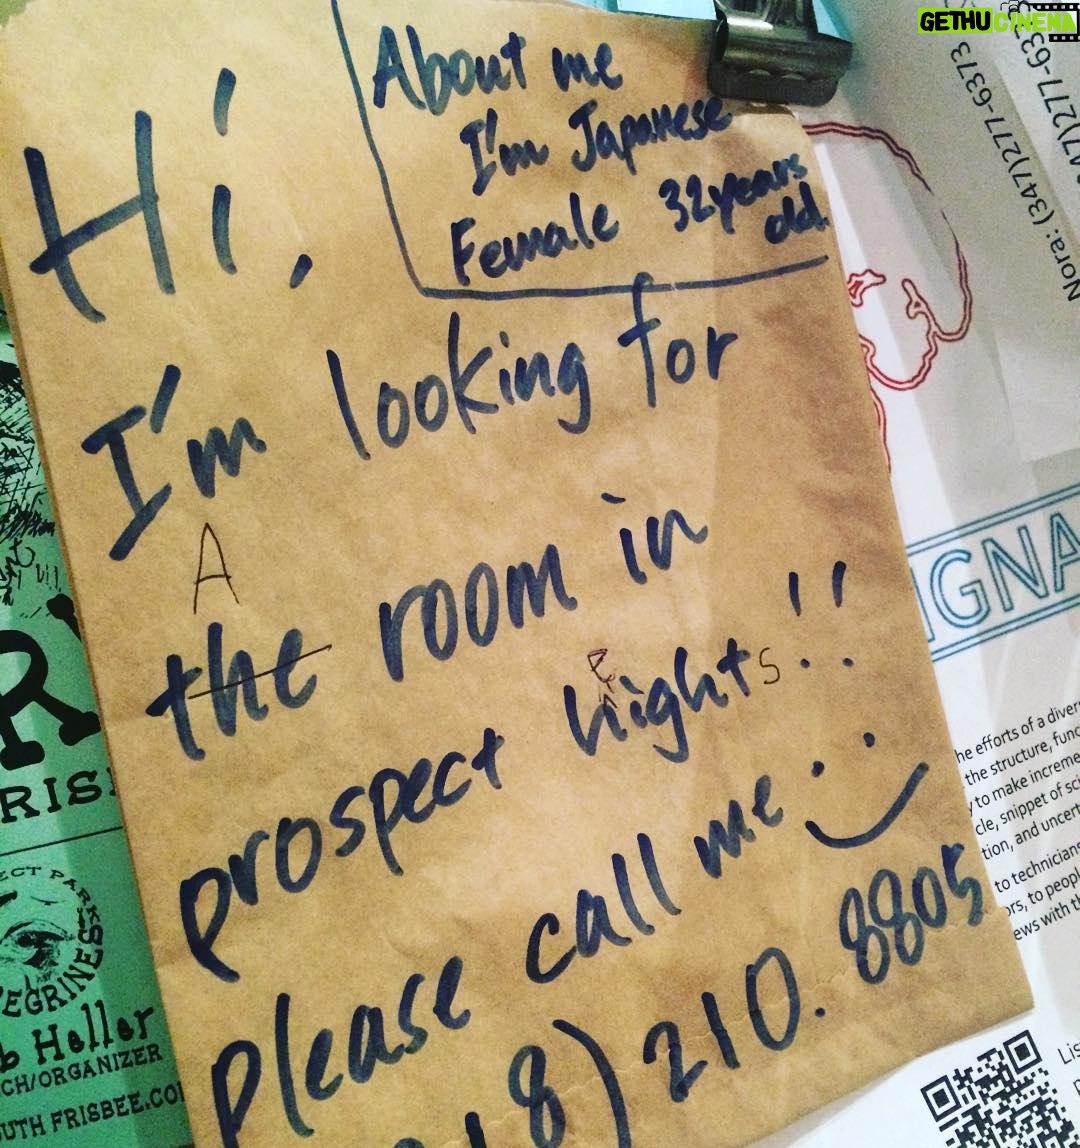 GETHUCINEMA
About me
I'm Japanese
Female 32years
old.
Hi,
I'm looking for
A
the room in
prospect hights!!
e s
please call me
8) 210. 8805
Nora: (347)277-6373
IGNA
he efforts of a diver
the structure, func
y to make increme
cle, snippet of sci
tion, and uncert
to technicians
ors, to people
ews with th
Lis
R
RISB
ECT PARK
EGRINES
b Heller
CH/ORGANIZER
UTH FRISBEE.CO